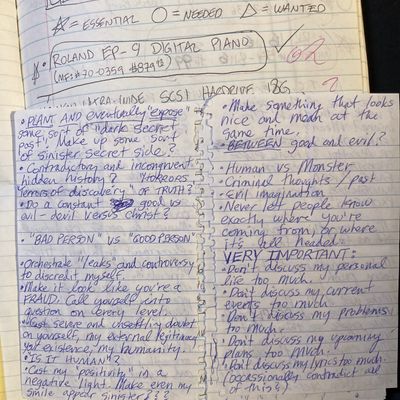 ☆ = ESSENTIAL ○ = NEEDED △ = WANTED
• ROLAND EP-9 DIGITAL PIANO
(MFS # 70-0359 $879
ULTRA-WIDE SCSI HARDRIVE 18G
• PLANT AND eventually "expose"
some sort of "dark secret
past". Make up some sort
of sinister secret side?
• Contradictory and incongruent
hidden history?
terrors of discovery" OF TRUTH?
• Do a constant good vs
evil - devil versus Christ?
• "BAD PERSON" VS "GOOD PERSON"
• Orchestrate "leaks" and controversy
to discredit myself.
• Make it look like you're a
FRAUD. Call yourself into
question on every level.
• Cast severe and unsettling doubt
on yourself, my external legitimacy
your existence, my humanity.
• "IS IT HUMAN"?
• Cast my "positivity" in a
negative light. Make even my
smile appear sinister???
• Make something that looks
nice and mean at the
same time.
• BETWEEN good and evil?
• Human vs Monster
• Criminal thoughts / past
• Evil imagination
• Never let people know
exactly where you're
coming from, or where
it's all headed.
VERY IMPORTANT:
• Don't discuss my personal
life too much.
• Don't discuss my current
events too much.
• Don't discuss my problems
too much.
• Don't discuss my upcoming
plans too much.
• Don't discuss my lyrics too much.
(occassionally contradict all
of this)